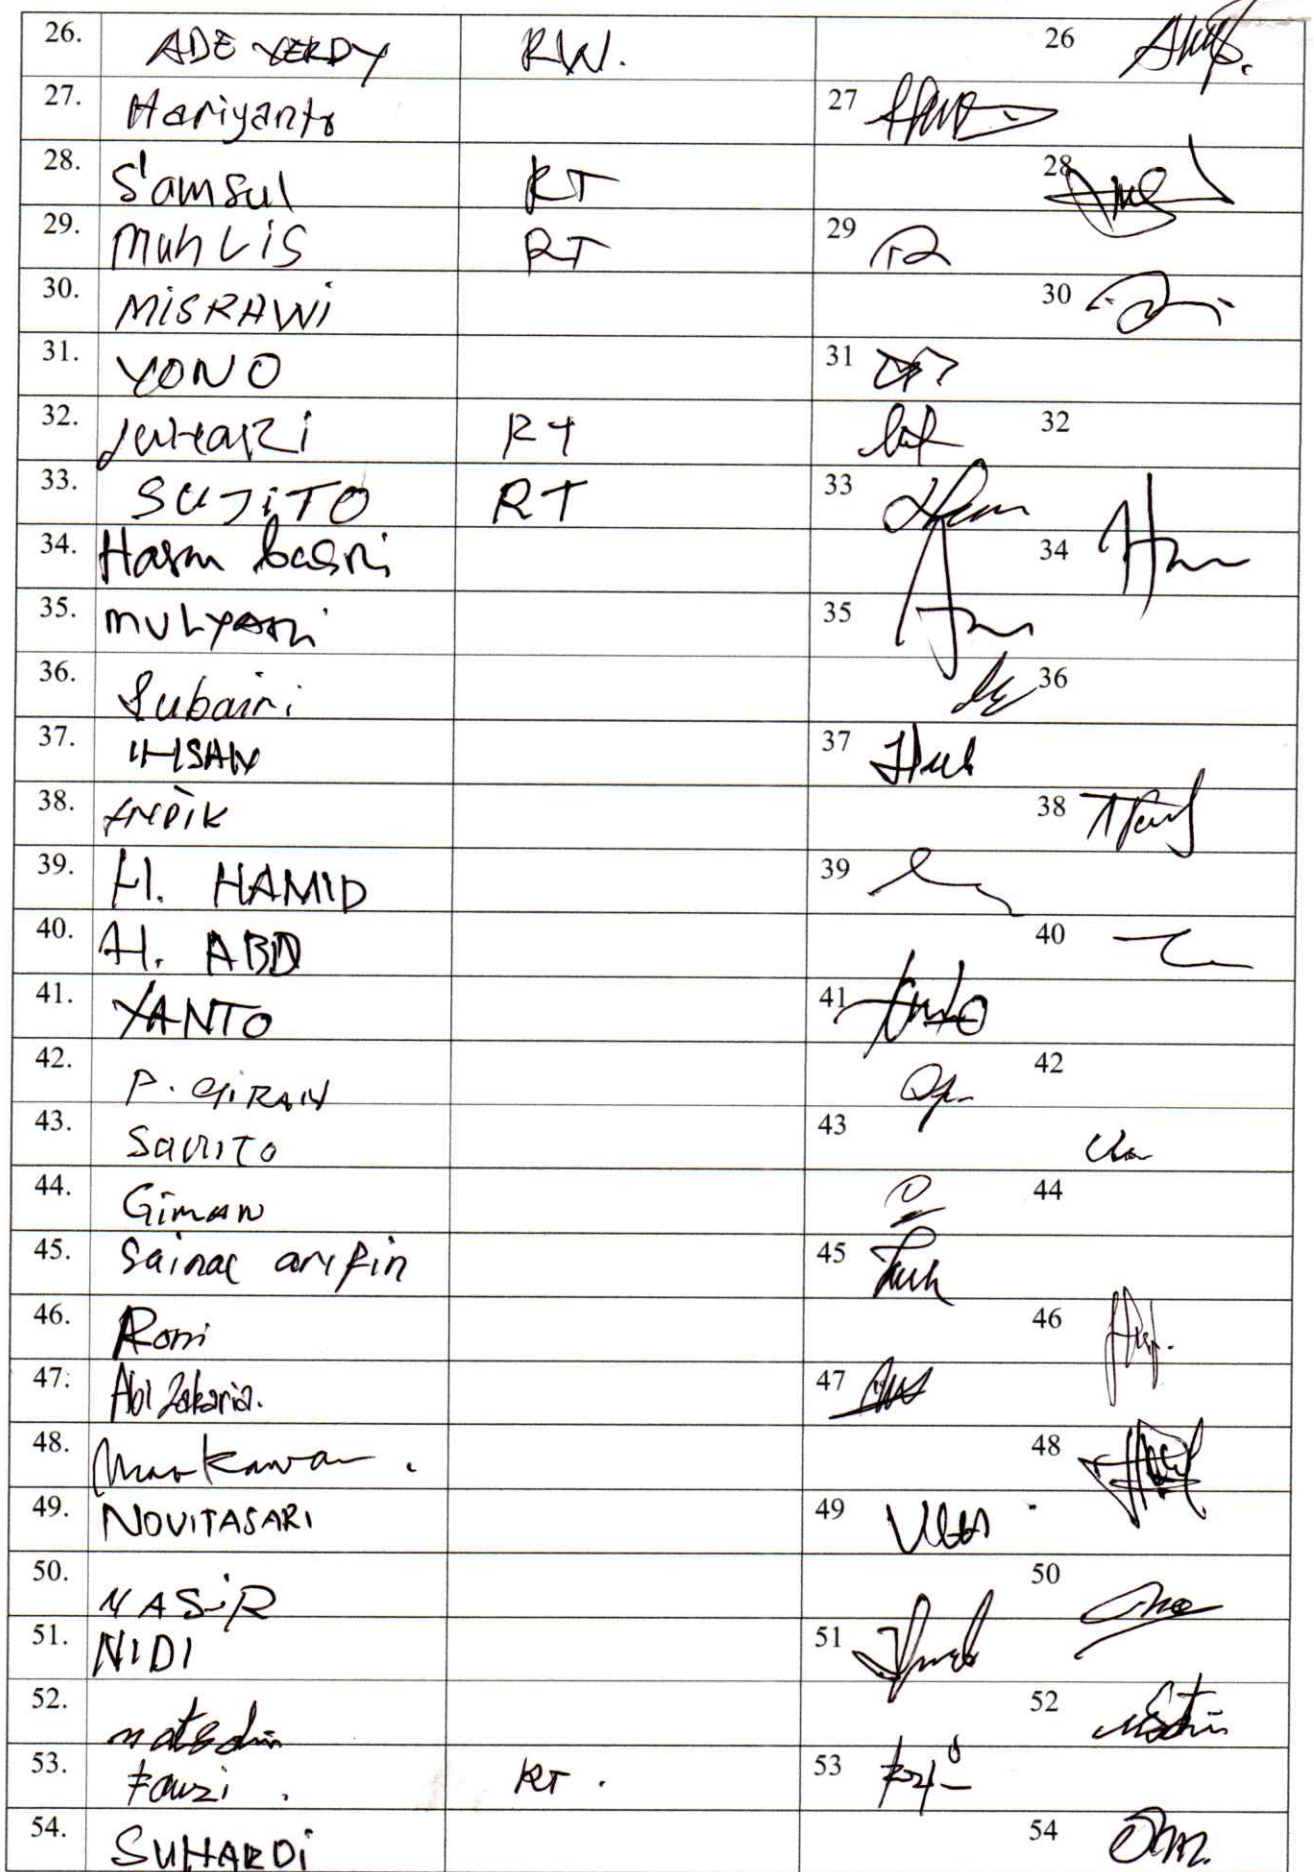 26. ADE YERDY RW. 26
27. Hariyanto 27
28. Samsul RT 28
29. Muhlis RT 29
30. MISRAWI 30
31. YONO 31
32. JUHARI RT 32
33. SUJITO RT 33
34. Hasan basri 34
35. MULYADI 35
36. Subairi 36
37. IHSAN 37
38. ANDIK 38
39. H. HAMID 39
40. H. ABD 40
41. YANTO 41
42. P. GIRAN 42
43. 43
44. GIMAN 44
45. Sainal arifin 45
46. Roni 46
47. Abi Zakaria. 47
48. 48
49. NOVITASARI 49
50. NASIR 50
51. NIDI 51
52. 52
53. Fauzi . RT . 53
54. SUHARDI 54